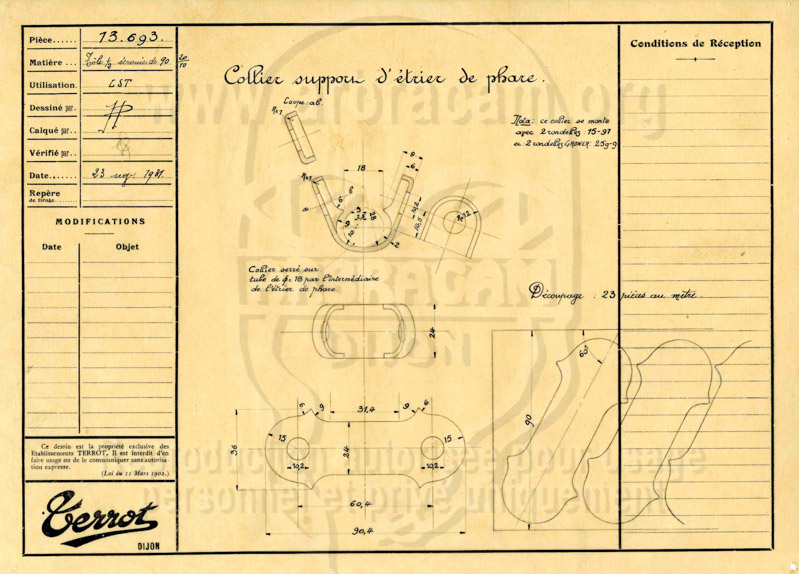 Pièce...... 13.693.
Matière... Tôle
Utilisation. LST
Dessiné par.
Calqué par..
Vérifié par..
Date...... 23 1931.
Repère
de tirage
MODIFICATIONS
Date Objet
Ce dessin est la propriété exclusive des
Etablissements TERROT, Il est interdit d'en
faire usage ou de le communiquer sans autorisa-
tion expresse.
(Loi du 11 Mars 1902.)
Terrot
DIJON
Collier support d'étrier de phare.
Coupe: ab.
Nota: ce collier se monte
avec 2 rondelles: 15-91
et 2 rondelles GROWER: 259-9
Conditions de Réception
18
9
6
14,2
10,5
2
Collier serré sur
tube de φ= 18 par l'intermédiaire
de l'étrier de phare
24
Découpage : 23 pièces au mètre.
60°
90
6 9 31,4 9 6
36
15
24
15
10,2
10,2
60,4
90,4
www.motoracam.org
MOTORACAM
DIJON
Reproduction autorisée pour usage
personnel et privé uniquement